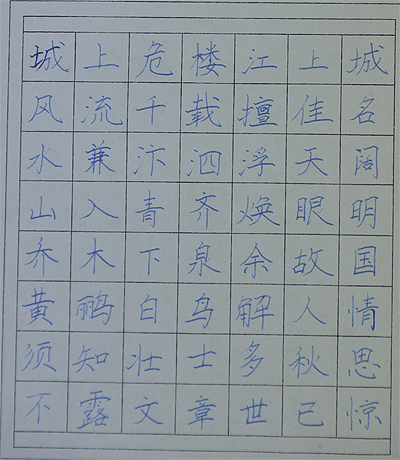 城上危楼江上城
风流千载擅佳名
水兼汴泗浮天阔
山入青齐焕眼明
乔木下泉余故国
黄鹂白鸟解人情
须知壮士多秋思
不露文章世已惊